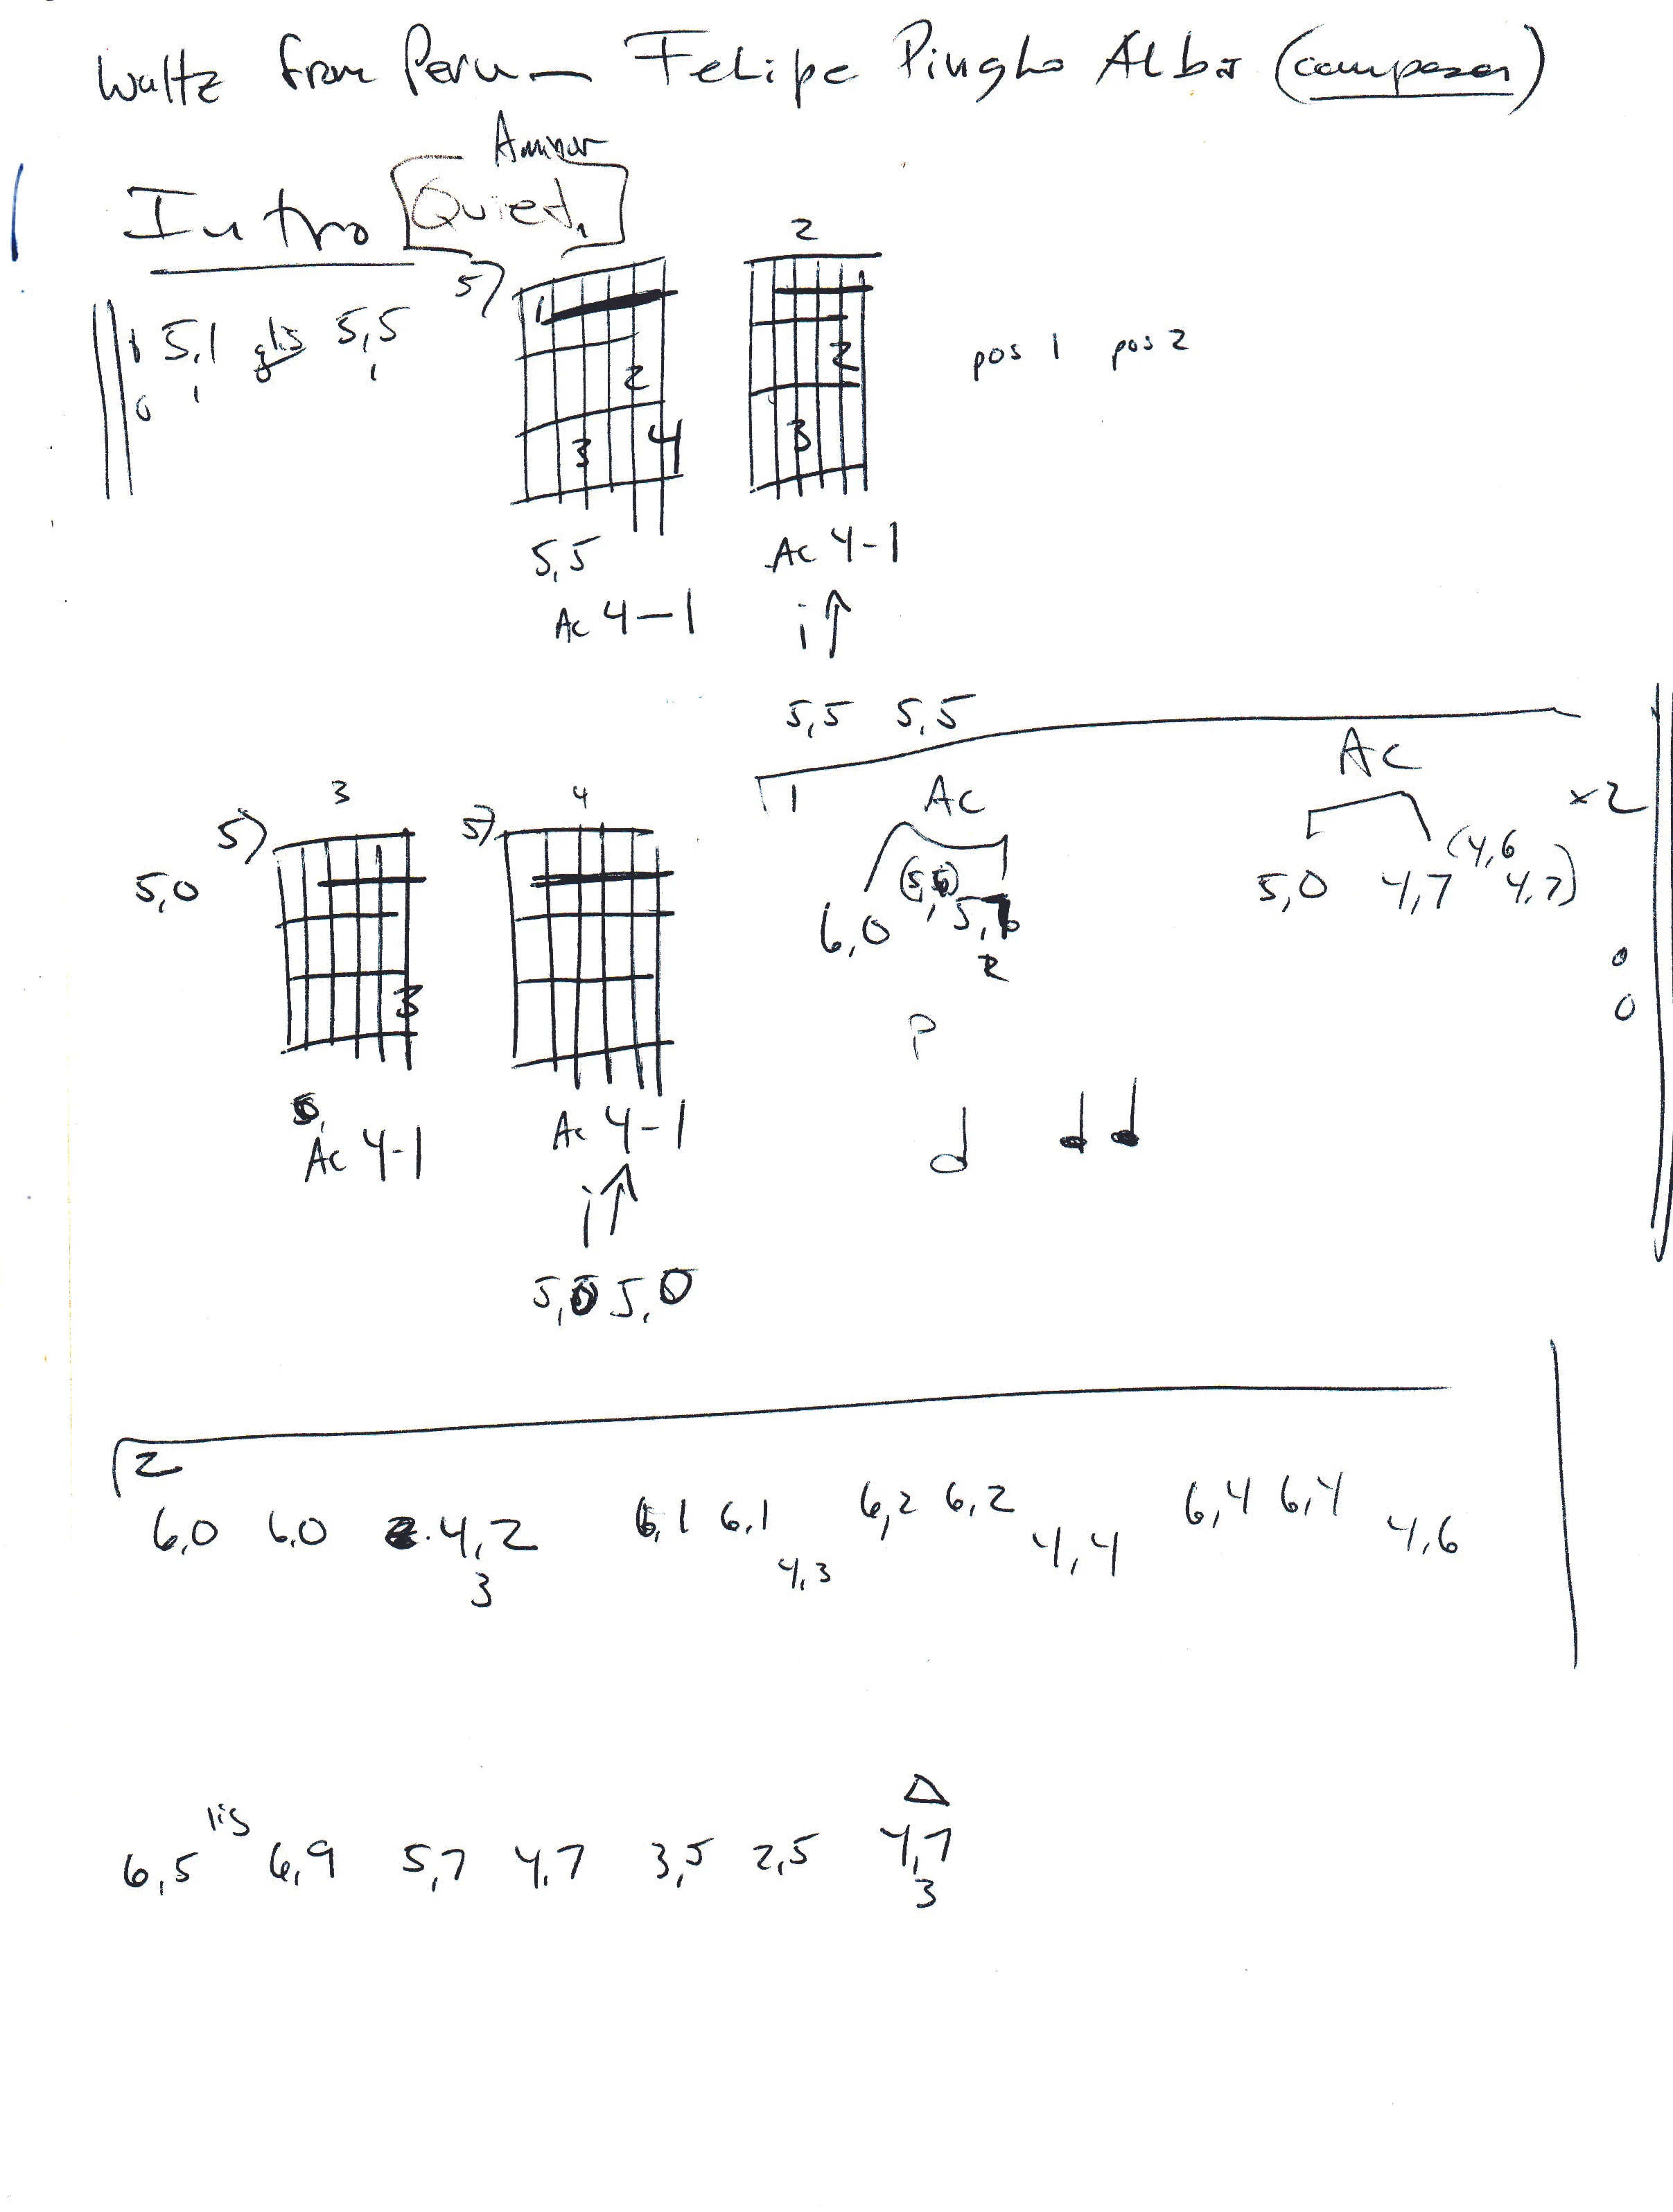 Waltz from Peru — Felipe Pinglo Alba (composer)
Aminor
Intro Quiet
5,1 glis 5,5
1 1
5) 1
2
3 4
5,5
Ac 4-1
2
2
3
Ac 4-1
i↑
5,5 5,5
pos 1 pos 2
3
5,0 5)
3
Ac 4-1
4
5)
Ac 4-1
i↑
5,0 5,0
1 Ac Ac x2
6,0 5,0 4,7 (4,6 4,7)
P
2
6,0 6,0 4,2 6,1 6,1 4,3 6,2 6,2 4,4 6,4 6,4 4,6
3
6,5 lis 6,9 5,7 4,7 3,5 2,5 4,7
3